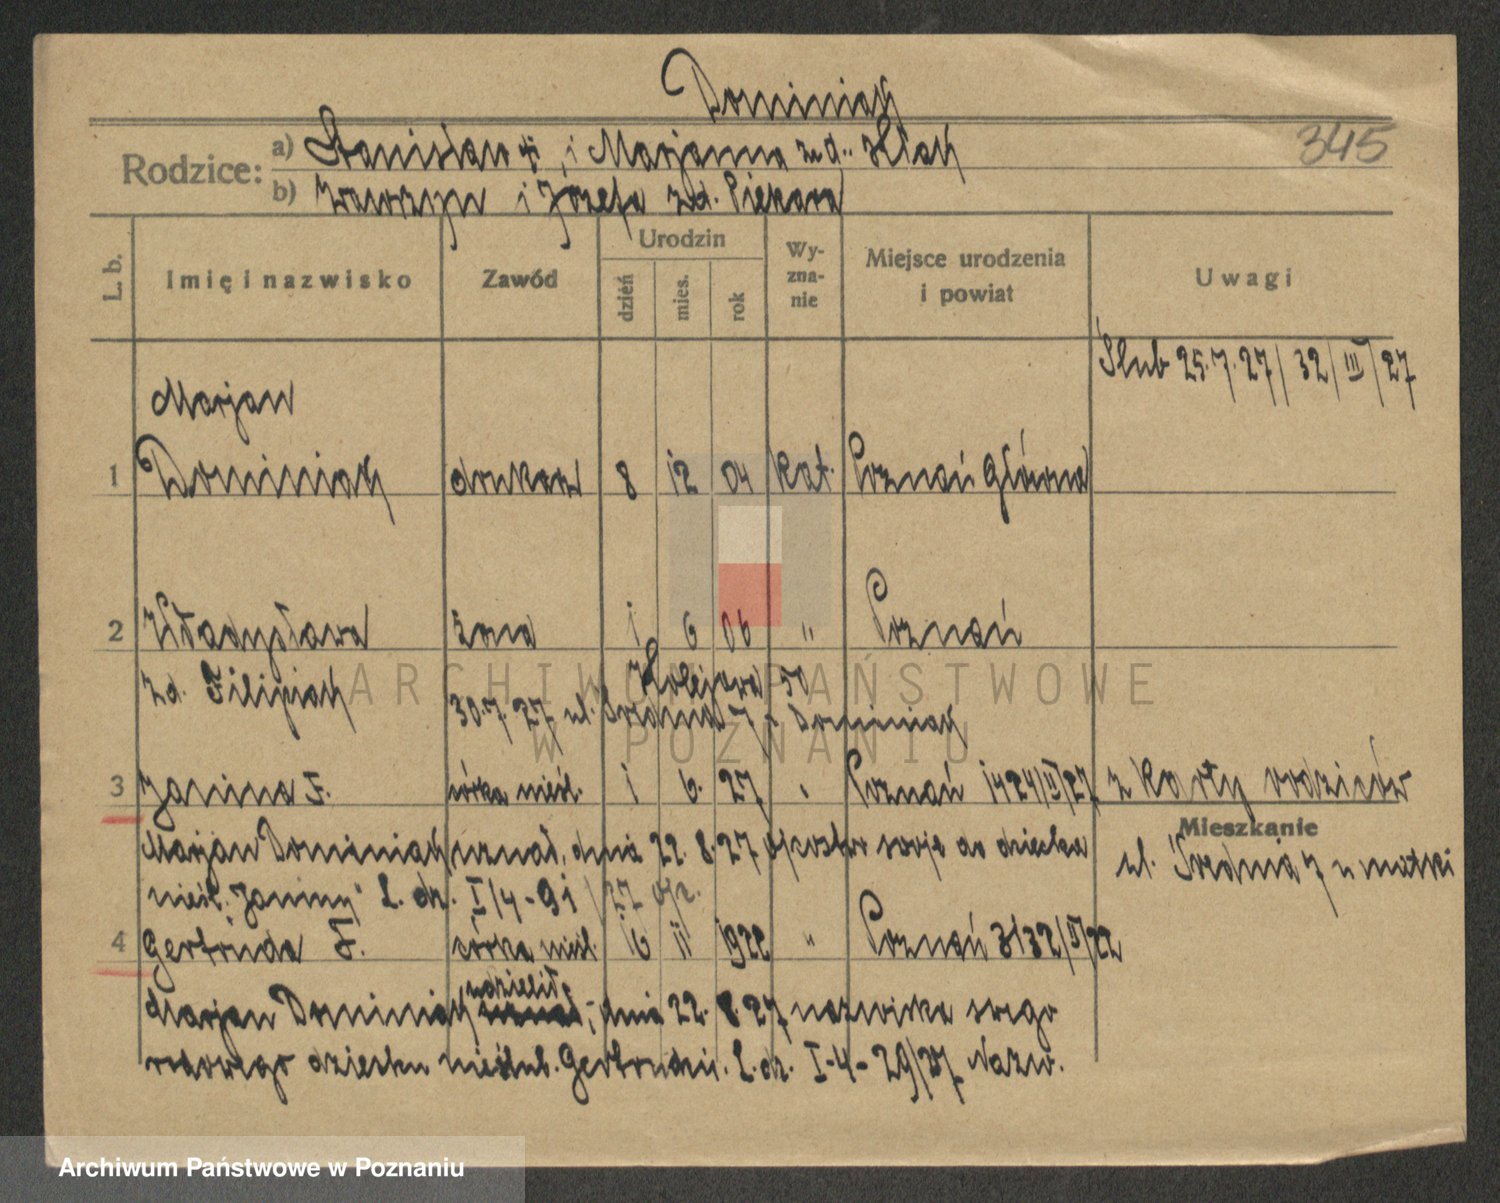 Dominiak
345
Rodzice:
a) Stanisław i Marjanna zd.
b) Wawrzyn i Józefa zd. Piekara
L. b.
Imię i nazwisko
Zawód
Urodzin
dzień
mies.
rok
Wy-
zna-
nie
Miejsce urodzenia
i powiat
Uwagi
Ślub 25.7.27/32/III/27
Marjan
1 Dominiak drukarz 8 12 04 kat. Poznań Główna
2 Władysława żona 1 6 06 " Poznań
zd. Filipiak
Kolejowa 50
30.7.27 ul. Średnia 7 Dominiak
ARCHIWUM PAŃSTWOWE
W POZNANIU
3 Janina F. córka nieśl. 1 6. 27 " Poznań 1424/II/27 z karty rodziców
Mieszkanie
ul. Średnia 7 u matki
Marjan Dominiak uznał, dnia 22.8.27 ojcostwo swoje do dziecka
nieśl. Janiny L. dz. I/4-91/27
4 Gertruda F. córka nieśl. 16 11 1922 " Poznań 3132/V/22
udzielił
Marjan Dominiak uznał, dnia 22.8.27 nazwiska swego
rodowego dziecku nieślub. Gertrudzie. L.dz. I-4-29/27 Nazw.
Archiwum Państwowe w Poznaniu